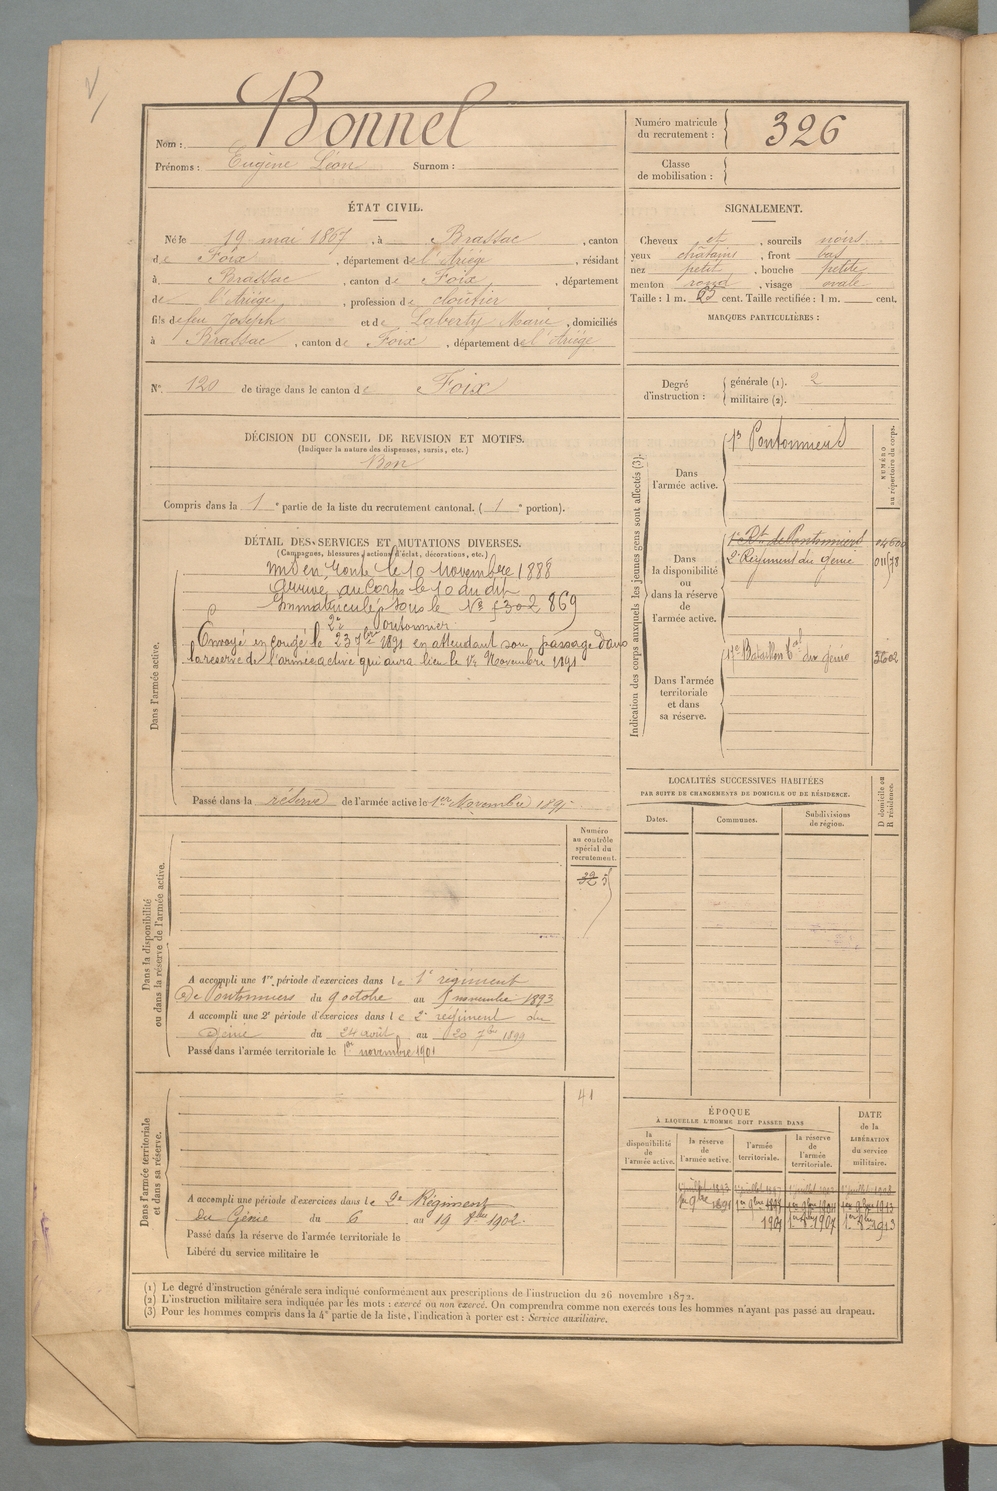 Bonnel
Nom :
Prénoms : Eugène Léon Surnom :
Numéro matricule du recrutement : 326
Classe de mobilisation :
ÉTAT CIVIL.
Né le 19 mai 1867, à Brassac, canton
de Foix, département de l'Ariège, résidant
à Brassac, canton de Foix, département
de l'Ariège, profession de cloutier
fils de feu Joseph et de Laberty Marie, domiciliés
à Brassac, canton de Foix, département de l'Ariège
N° 120 de tirage dans le canton de Foix
SIGNALEMENT.
Cheveux et, sourcils noirs
yeux châtains, front bas
nez petit, bouche petite
menton rond, visage ovale
Taille : 1 m. cent. Taille rectifiée : 1 m. cent.
MARQUES PARTICULIÈRES :
Degré d'instruction : générale (1). 2
militaire (2).
DÉCISION DU CONSEIL DE REVISION ET MOTIFS.
(Indiquer la nature des dispenses, sursis, etc.)
Bon
Compris dans la 1e partie de la liste du recrutement cantonal. (1e portion).
DÉTAIL DES SERVICES ET MUTATIONS DIVERSES.
(Campagnes, blessures, actions d'éclat, décorations, etc.)
Dans l'armée active.
Mis en route le 10 Novembre 1888
Arrivé au Corps le 10 du dit
Immatriculé sous le N° 869
2e Pontonnier
Envoyé en congé le 23 7bre 1891 en attendant son passage dans
la réserve de l'armée active qui aura lieu le 1er Novembre 1891
Passé dans la réserve de l'armée active le 1er Novembre 1891
Indication des corps auxquels les jeunes gens sont affectés (3).
NUMÉRO au répertoire du corps.
Dans l'armée active.
Pontonniers
Dans la disponibilité ou dans la réserve de l'armée active.
1er Rt de Pontonniers
2e Régiment du génie
Dans l'armée territoriale et dans sa réserve.
17e Bataillon tal du génie
LOCALITÉS SUCCESSIVES HABITÉES
PAR SUITE DE CHANGEMENTS DE DOMICILE OU DE RÉSIDENCE.
Dates. Communes. Subdivisions de région. D domicile ou R résidence.
Dans la disponibilité ou dans la réserve de l'armée active.
Numéro au contrôle spécial du recrutement.
A accompli une 1re période d'exercices dans le 1er régiment
de Pontonniers du 9 octobre au 5 novembre 1893
A accompli une 2e période d'exercices dans le 2e régiment du
Génie du 24 août au 20 7bre 1899
Passé dans l'armée territoriale le 1er novembre 1901
Dans l'armée territoriale et dans sa réserve.
41
A accompli une période d'exercices dans le 2e Régiment
du Génie du 6 au 19 1902.
Passé dans la réserve de l'armée territoriale le
Libéré du service militaire le
ÉPOQUE
À LAQUELLE L'HOMME DOIT PASSER DANS
la disponibilité de l'armée active.
la réserve de l'armée active.
l'armée territoriale.
la réserve de l'armée territoriale.
DATE de la LIBÉRATION du service militaire.
1er 9bre 1891
1901 1907 1913
(1) Le degré d'instruction générale sera indiqué conformément aux prescriptions de l'instruction du 26 novembre 1872.
(2) L'instruction militaire sera indiquée par les mots : exercé ou non exercé. On comprendra comme non exercés tous les hommes n'ayant pas passé au drapeau.
(3) Pour les hommes compris dans la 4e partie de la liste, l'indication à porter est : Service auxiliaire.